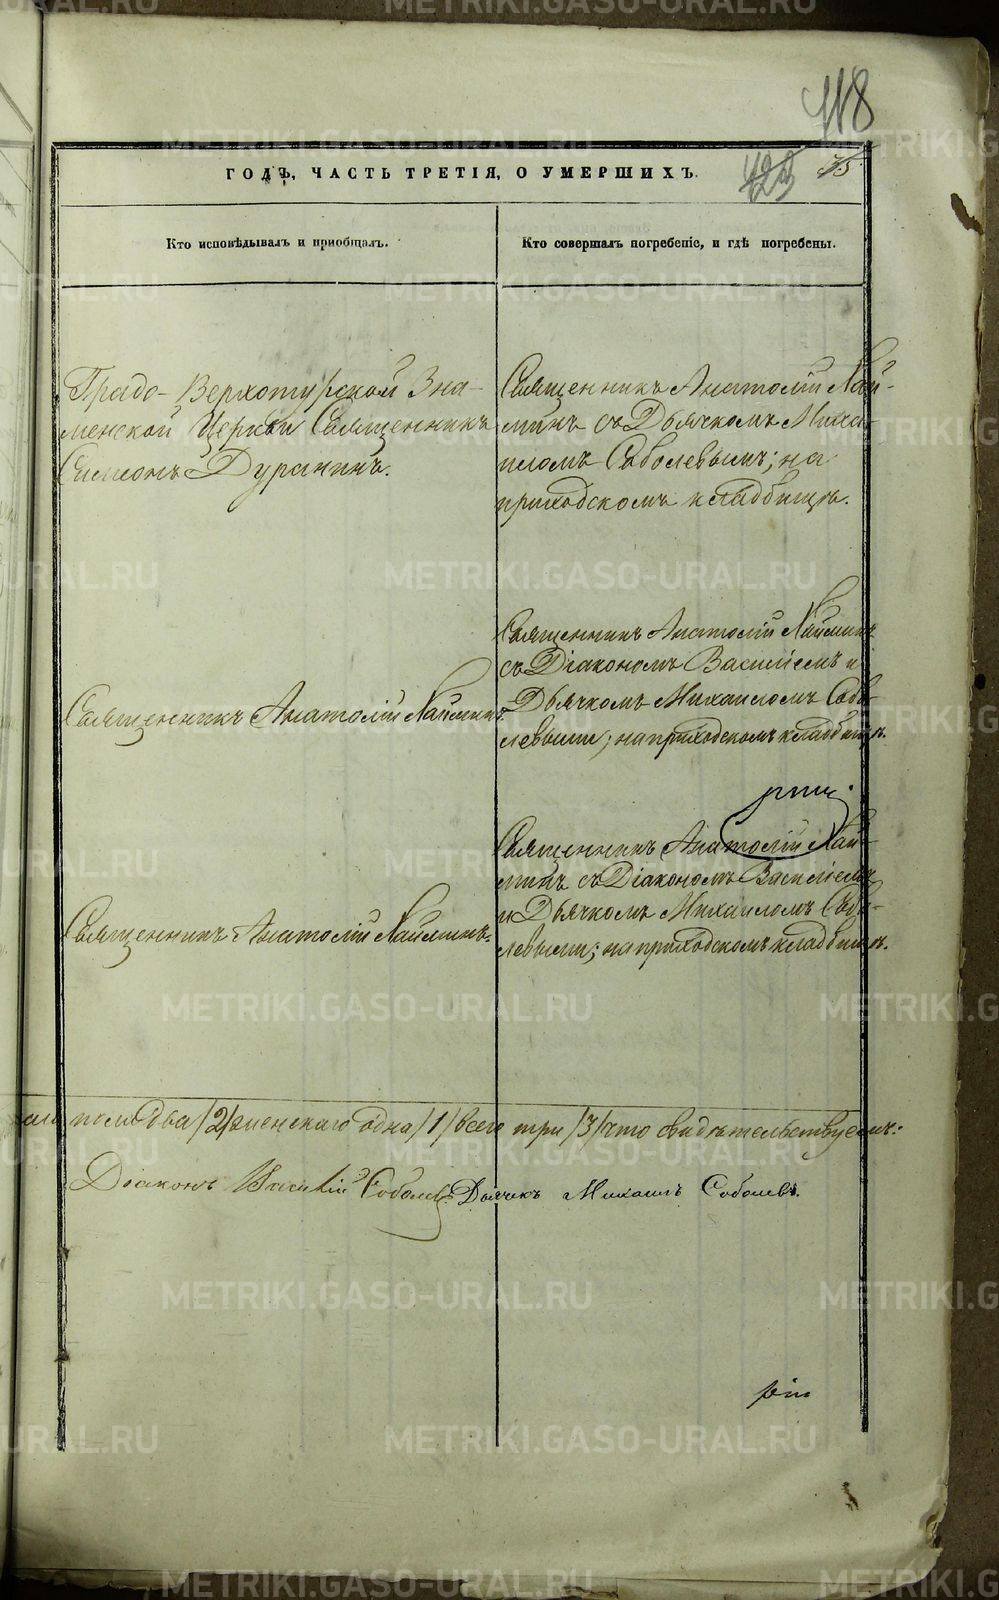 118
75
423
ГОДЪ, ЧАСТЬ ТРЕТІЯ, О УМЕРШИХЪ.
Кто исповѣдывалъ и приобщалъ.
Кто совершалъ погребеніе, и гдѣ погребены.
Градо-Верхотурской Зна-
менской Церкви Священникъ
Симеонъ Дуранинъ.
Священникъ Анатолій Лай-
минъ съ Дьячкомъ Миха-
иломъ Соболевымъ; на
приходскомъ кладбищѣ.
Священникъ Анатолій Лайминъ.
Священникъ Анатолій Лайминъ
съ Діакономъ Василіемъ и
Дьячкомъ Михаиломъ Собо-
левыми; на приходскомъ кладбищѣ.
Священникъ Анатолій Лайминъ.
Священникъ Анатолій Лай-
минъ съ Діакономъ Василіемъ
и Дьячкомъ Михаиломъ Собо-
левыми; на приходскомъ кладбищѣ.
пола два /2/ женскаго одна /1/ всего три /3/ что свидѣтельствуемъ:
Діаконъ Василій Соболевъ Дьячекъ Михаилъ Соболевъ.
METRIKI.GASO-URAL.RU